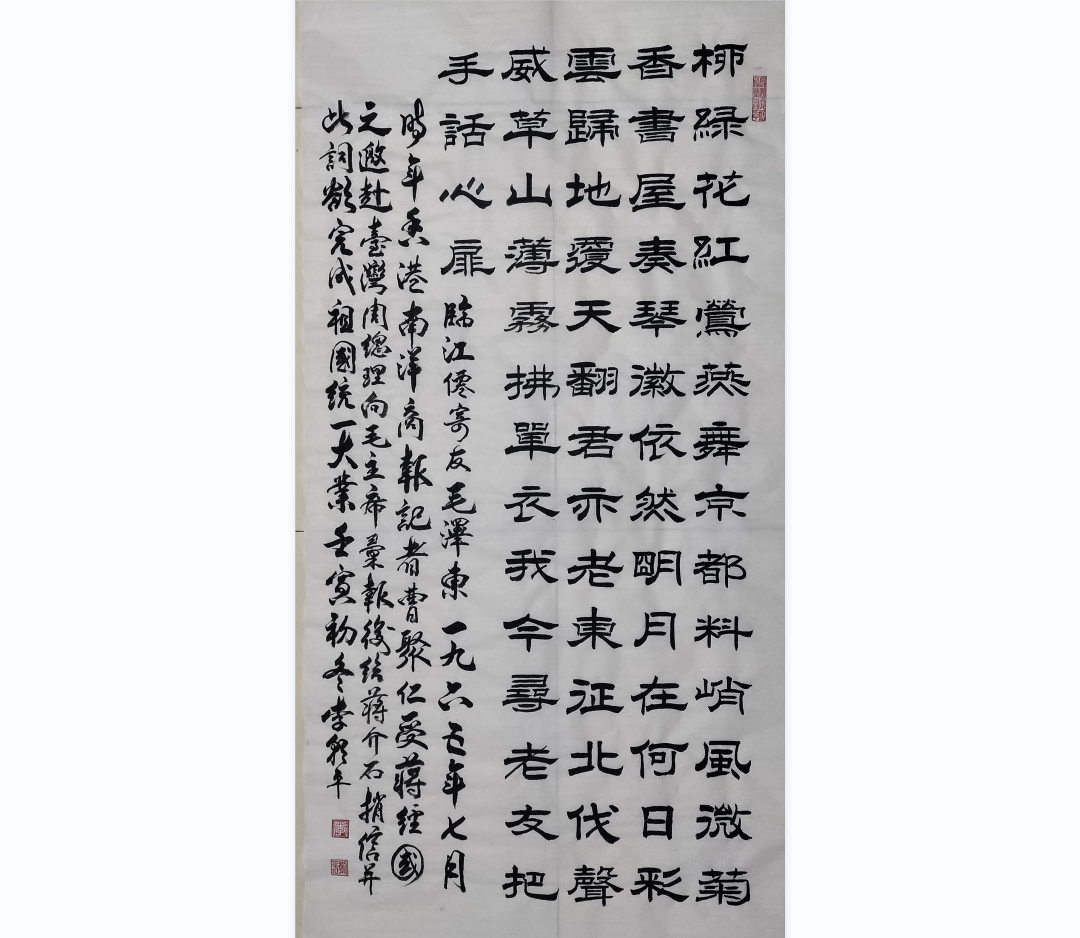 柳綠花紅鶯燕舞京都料峭風微菊
香書屋奏琴徽依然明月在何日彩
雲歸地覆天翻君亦老東征北伐聲
威草山薄霧拂單衣我今尋老友把
手話心扉
臨江僊寄友毛澤東一九六五年七月
時年香港南洋商報記者曹聚仁受蔣經國
之邀赴臺灣周總理向毛主席稟報後給蔣介石捎信并
此詞欲完成祖國統一大業壬寅初冬李
年